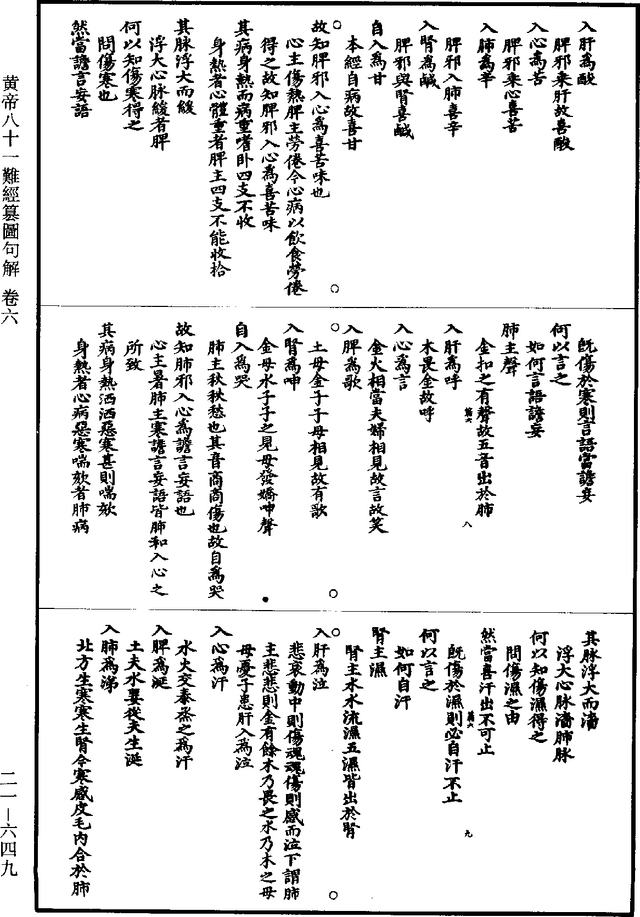 入肝為酸
脾邪乘肝故喜酸
入心為苦
脾邪乘心喜苦
入肺為辛
脾邪入肺喜辛
入腎為鹹
脾邪與腎喜鹹
自入為甘
本經自病故喜甘
故知脾邪入心為喜苦味也
心主傷熱脾主勞倦今心病以飲食勞倦
得之故知脾邪入心為喜苦味
其病身熱而病重嗜卧四支不收
身熱者心體重者脾主四支不能收拾
其脉浮大而緩
浮大心脉緩者脾
何以知傷寒得之
問傷寒也
然當譫言妄語
既傷於寒則言語當譫妄
何以言之
如何言語譫妄
肺主聲
金扣之有聲故五音出於肺
入肝為呼
木畏金故呼
入心為言
金火相當夫婦相見故言故笑
入脾為歌
土母金子子母相見故有歌
入腎為呻
金母水子子之見母發嬌呻聲
自入為哭
肺主秋秋愁也其音商商傷也故自為哭
故知肺邪入心為譫言妄語也
心主暑肺主寒譫言妄語皆肺和入心之
所致
其病身熱洒洒惡寒甚則喘欬
身熱者心病惡寒喘欬者肺病
其脉浮大而濇
浮大心脉濇肺脉
何以知傷濕得之
問傷濕之由
然當喜汗出不可止
既傷於濕則必自汗不止
何以言之
如何自汗
腎主濕
腎主水水流濕五濕皆出於腎
入肝為泣
悲哀動中則傷魂魂傷則感而泣下謂肺
主悲悲則金有餘木乃畏之水乃木之母
母憂子患肝入為泣
入心為汗
水火交泰烝之為汗
入脾為涎
土夫水妻從夫生涎
入肺為涕
北方生寒寒生腎令寒感皮毛內合於肺
黄帝八十一難經纂圖句解 卷六
二一—六四九